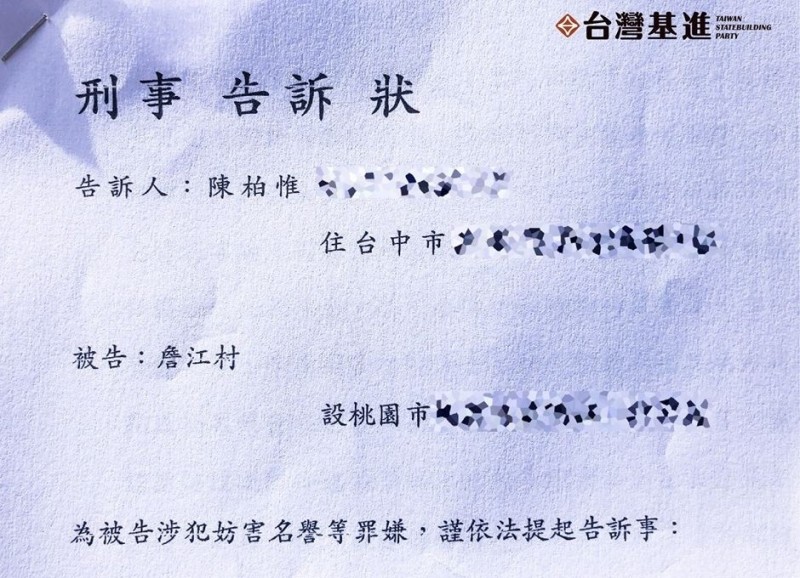 台灣基進
TAIWAN
STATEBUILDING
PARTY
刑事 告訴 狀
告訴人：陳柏惟
住台中市
被告：詹江村
設桃園市
為被告涉犯妨害名譽等罪嫌，謹依法提起告訴事：